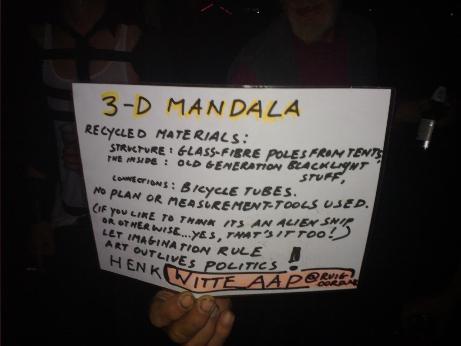 3-D MANDALA
RECYCLED MATERIALS:
STRUCTURE: GLASS-FIBRE POLES FROM TENTS,
THE INSIDE: OLD GENERATION BLACKLIGHT
STUFF,
CONNECTIONS: BICYCLE TUBES.
NO PLAN OR MEASUREMENT-TOOLS USED.
(IF YOU LIKE TO THINK ITS AN ALIEN SHIP
OR OTHERWISE...YES, THAT'S IT TOO!)
LET IMAGINATION RULE
ART OUTLIVES POLITICS!
HENK WITTE AAP @RUIG-
OORD.NL